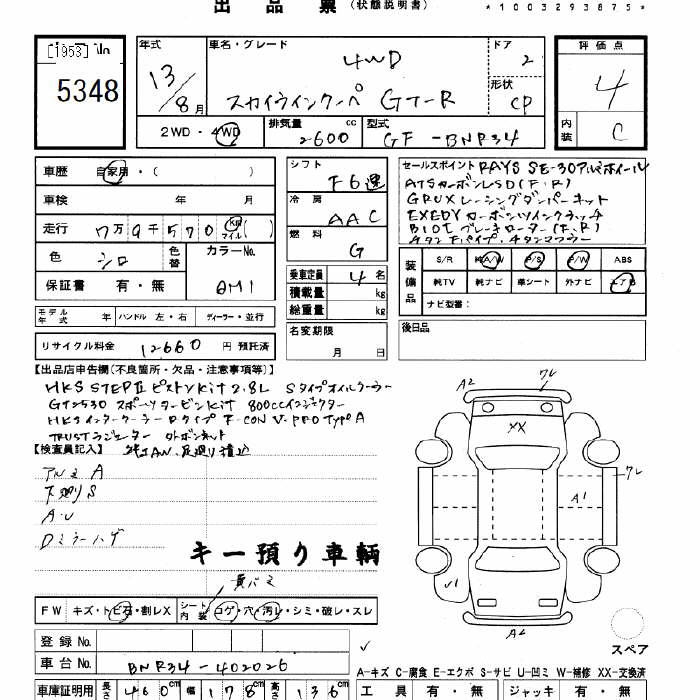 出品票 (状態説明書)
*1003293875*
[1953]
5348
年式 13/8月
車名・グレード 4WD
スカイラインクーペ GT-R
ドア 2
形状 CP
評価点 4
内装 C
2WD・4WD 排気量 2600 cc 型式 GF-BNR34
車歴 自家用・( )
車検 年 月
走行 7万9千570 km マイル ( )
色 シロ 色替 カラーNo. QM1
保証書 有・無
シフト F6速
冷房 AAC
燃料 G
乗車定員 4名
積載量 kg
総重量 kg
名変期限 月 日
セールスポイント RAYS SE-30アルミホイール
ATSカーボンLSD(F,R)
GRUXレーシングダンパーキット
EXEDYカーボンツインクラッチ
BIOTブレーキローター(F,R)
チタンFパイプ,チタンマフラー
装備品 S/R 純A/W P/S P/W ABS
純TV 純ナビ 革シート 外ナビ エアB
ナビ型番:
後日品
モデル年式 年 ハンドル 左・右 ディーラー・並行
リサイクル料金 12660 円 預託済
【出品店申告欄(不良箇所・欠品・注意事項等)】
HKS STEPⅡピストンKit 2.8L Sタイプオイルクーラー
GT2530 スポーツタービンKit 800ccインジェクター
HKSインタークーラーRタイプ F-CON V-PRO TypeA
TRUSTラジエター
【検査員記入】
アルミA
下廻りS
A・U
Dミラーハゲ
キー預り車輌
FW キズ・トビ石・割レX シート内装 コゲ・穴・汚レ・シミ・破レ・スレ
登録No.
車台No. BNR34-402026
車庫証明用 長さ 460cm 幅 178cm 高さ 136cm
A2
ワレ
XX
ワレ
A1
A2
スペア
A-キズ C-腐食 E-エクボ S-サビ U-凹ミ W-補修 XX-交換済
工具 有・無 ジャッキ 有・無